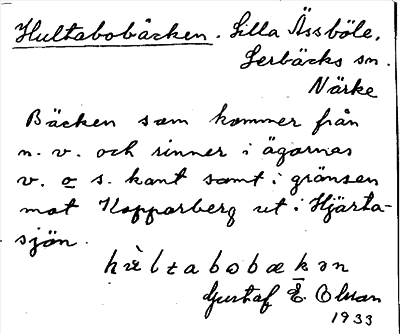 Hultabobäcken. Lilla Ässböle,
Lerbäcks sn.
Närke
Bäcken som kommer från
n. v. och rinner i ägornas
v. o s. kant samt i gränsen
mot Kopparberg ut i Hjärta-
sjön.
hùltabobækən
Gustaf E. Olsson
1933